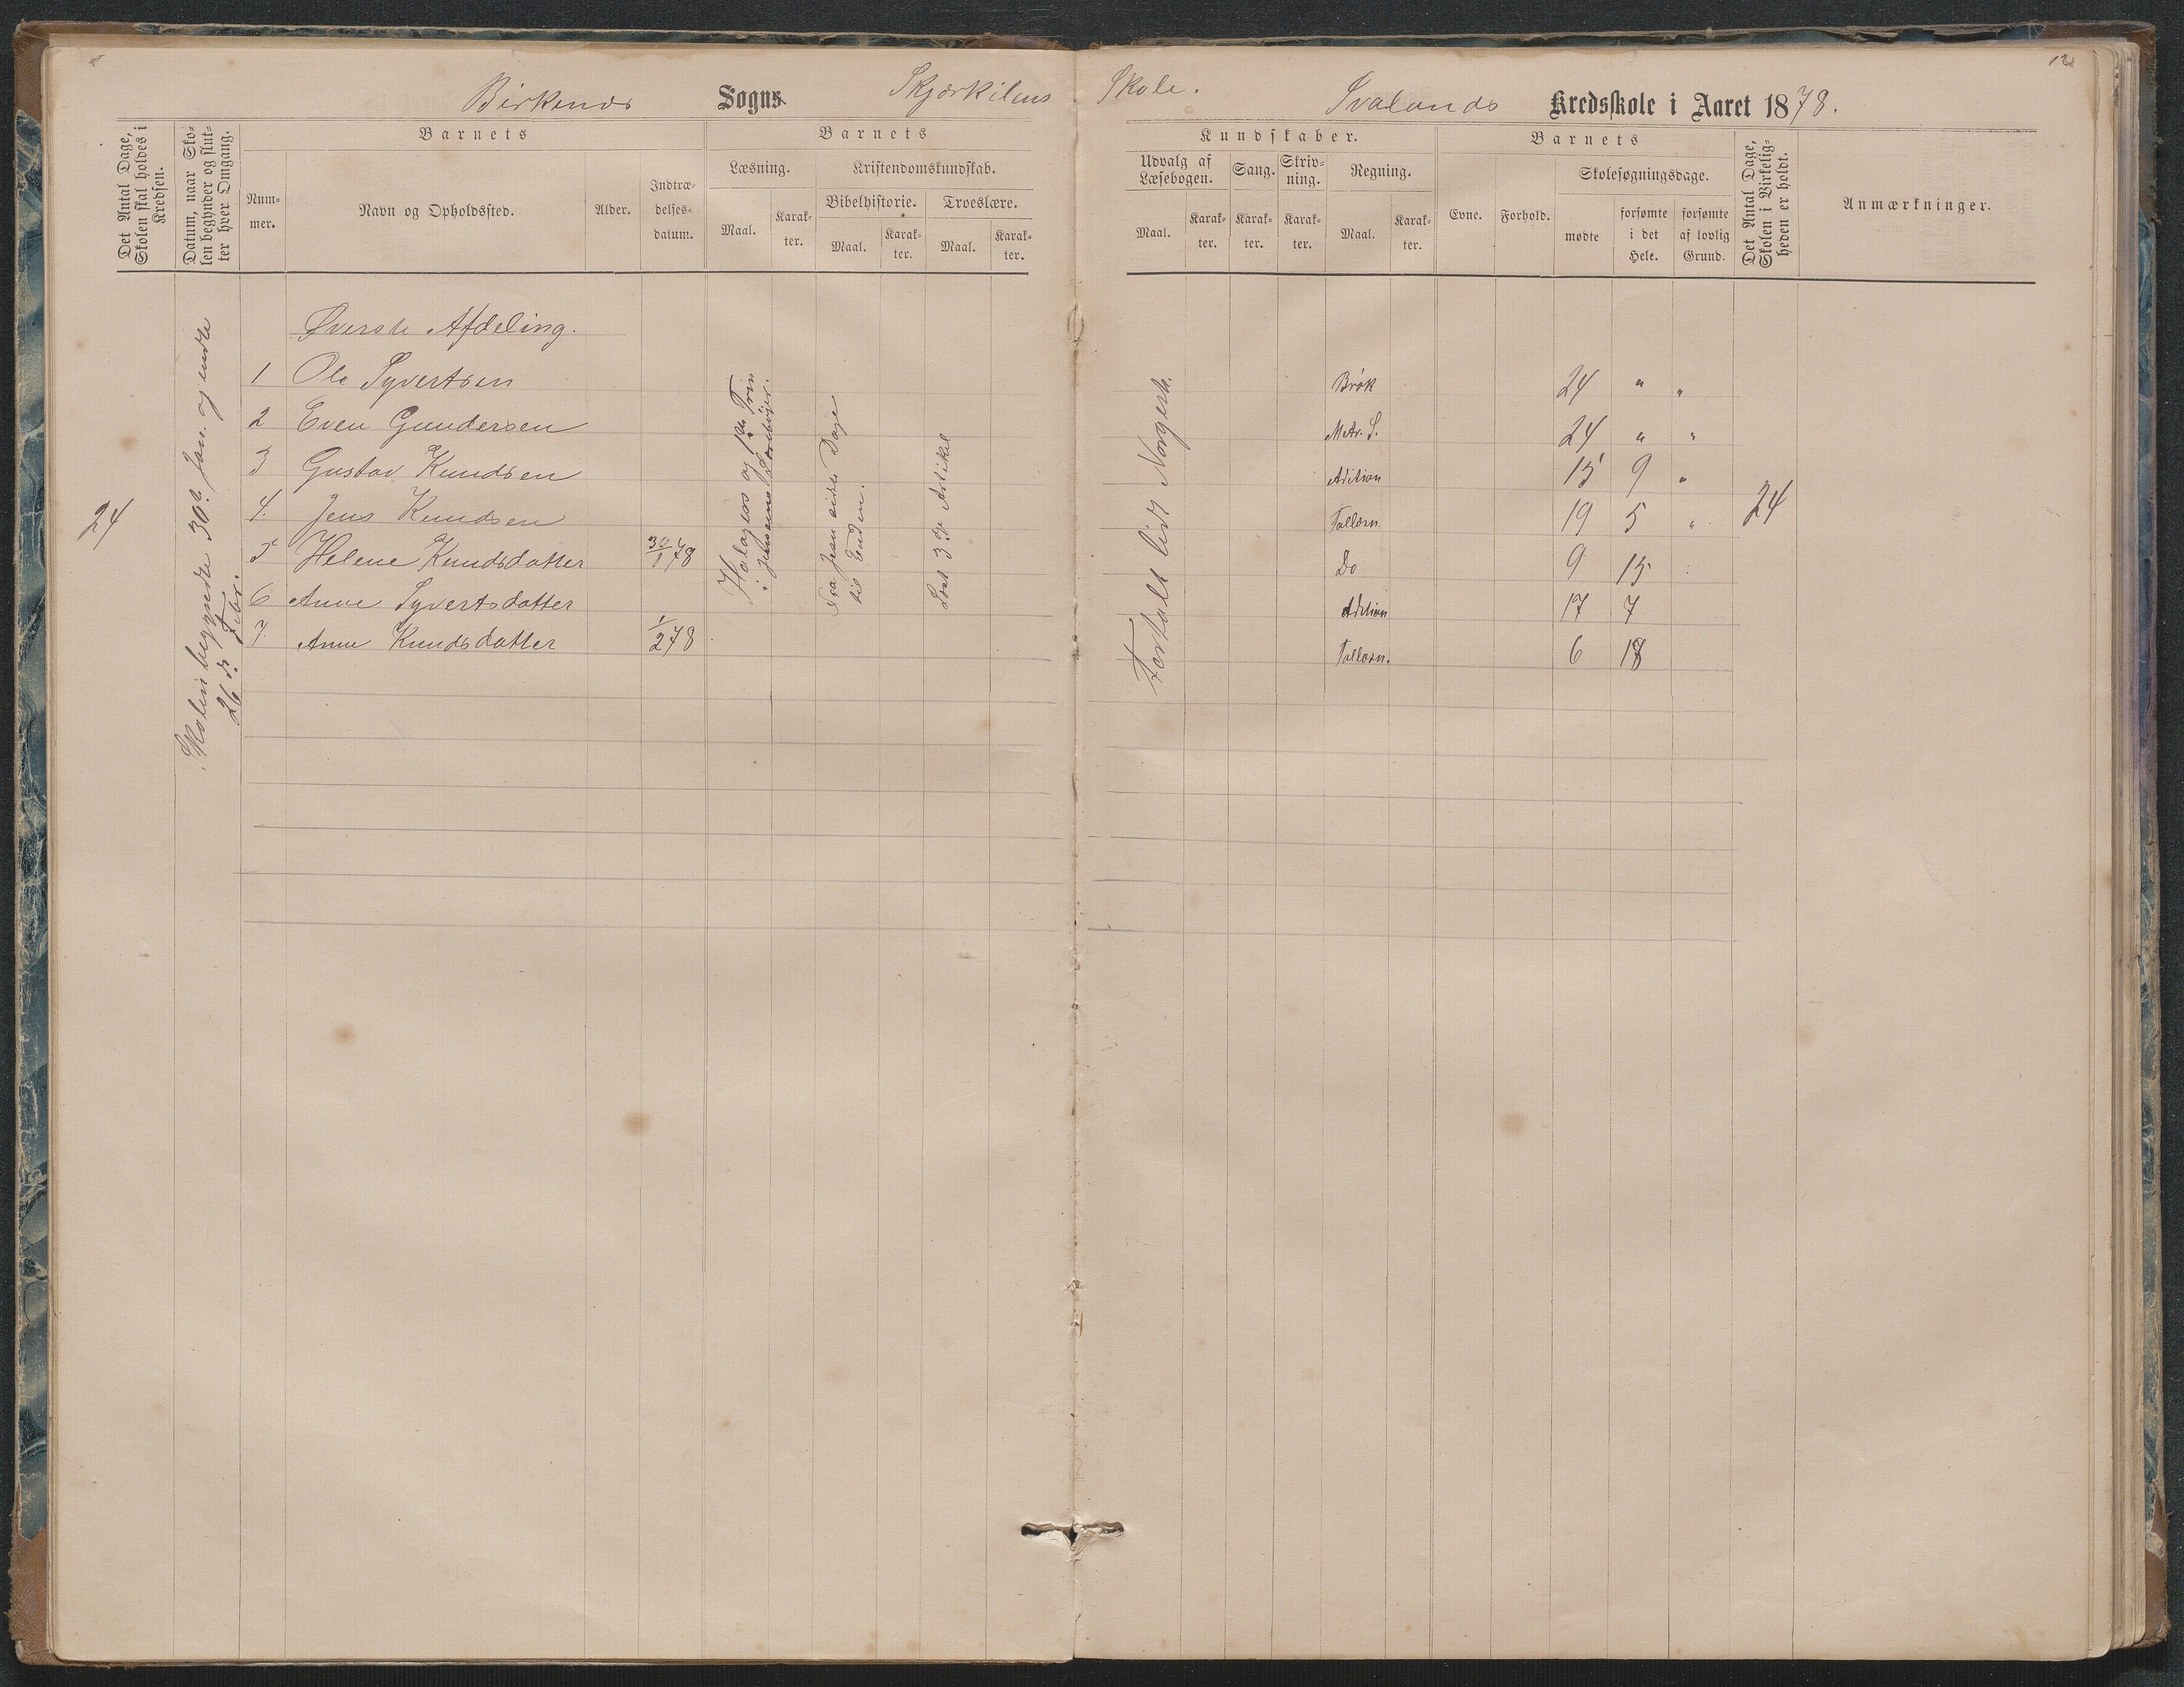 Birkenes Sogns Skjærkilens Skole. Svalands Kredsskole i Aaret 1878.
12
Det Antal Dage, Skolen skal holdes i Kredsen.
Datum, naar Skolen begynder og slutter hver Omgang.
Barnets
Nummer.
Navn og Opholdssted.
Alder.
Indtrædelsesdatum.
Barnets
Læsning.
Maal.
Karakter.
Kristendomskundskab.
Bibelhistorie.
Maal.
Karakter.
Troeslære.
Maal.
Karakter.
Kundskaber.
Udvalg af Læsebogen.
Maal.
Karakter.
Sang.
Karakter.
Skrivning.
Karakter.
Regning.
Maal.
Karakter.
Barnets
Evne.
Forhold.
Skolesøgningsdage.
mødte
forsømte i det Hele.
forsømte af lovlig Grund.
Det Antal Dage, Skolen i Virkeligheden er holdt.
Anmærkninger.
Øverste Afdeling.
1 Ole Syvertsen Brøk 24 " "
2 Even Gundersen 24 " "
3 Gustav Knudsen Adition 15 9 "
4. Jens Knudsen Tallæsn. 19 5 "
5 Helene Knudsdatter 30/1 78 Do 9 15
6 Anne Syvertsdatter Adition 17 7
7. Anne Knudsdatter 1/2 78 Tallæsn. 6 18
24
Skolen begyndte 30te Jan. og endte
26de Febr.
til Enden.
Læst 3die Artikel
Fortalt lidt
24